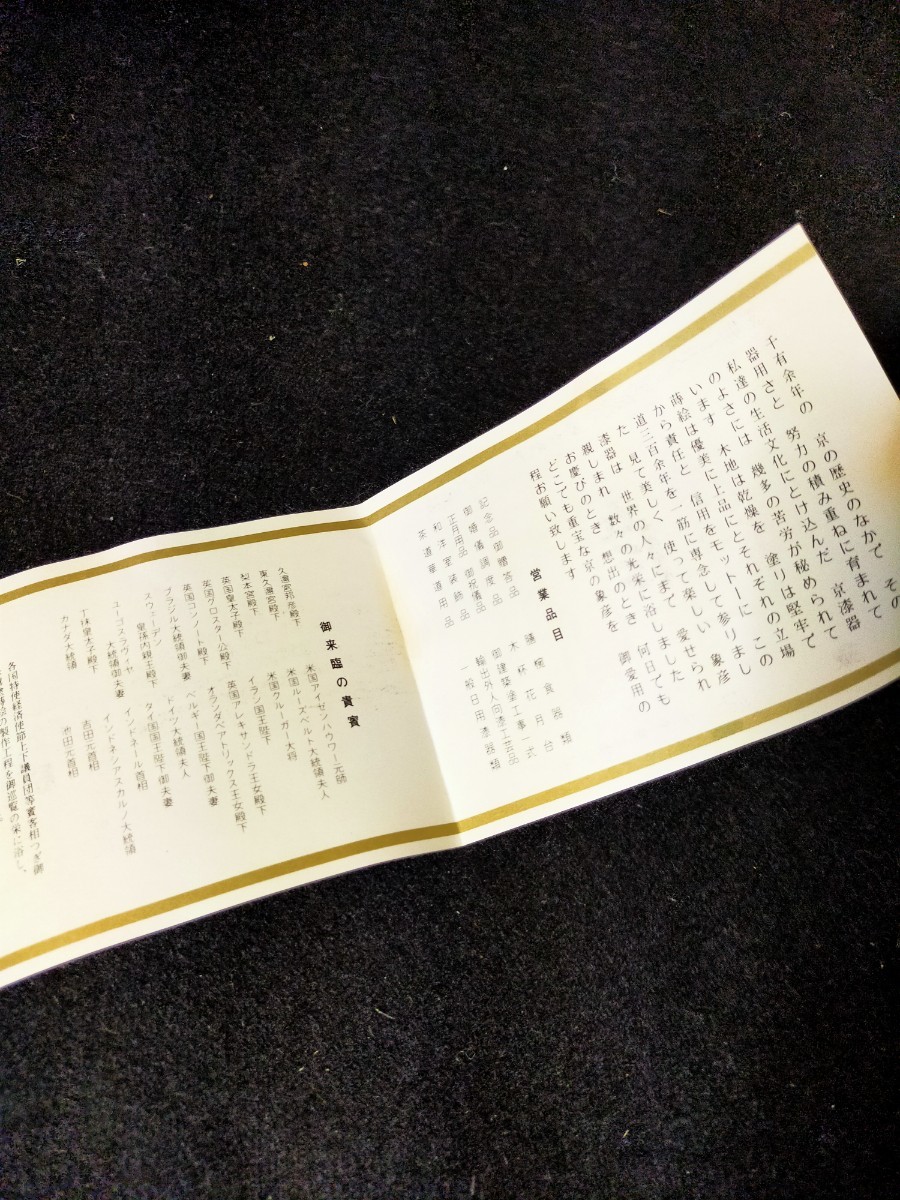 千有余年の 京の歴史のなかで その
器用さと 努力の積み重ねに育まれて
私達の生活文化にとけ込んだ 京漆器
のよさには 幾多の苦労が秘められて
います 木地は乾燥を 塗りは堅牢で
蒔絵は優美に上品にとそれぞれの立場
から責任と 信用をモットーに この
道三百余年を一筋に専念して参りまし
た 見て美しく 使って楽しい 象彦
漆器は 世界の人々にまで 愛せられ
親しまれ 数々の光栄に浴しました
お慶びのとき 想出のとき 何日でも
どこでも重宝な京の象彦を 御愛用の
程お願い致します
営業品目
記念品御贈答品
御婚儀御調度品
正月用品御祝儀品
和洋室装飾品
茶道華道用品
膳椀食器類
木杯花月台
御建築塗工事一式
輸出外人向漆工芸品
一般日用漆器類
御来臨の貴賓
久邇宮邦彦殿下
東久邇宮殿下
梨本宮殿下
英国皇太子殿下
英国グロスター公殿下
英国コンノート殿下
ブラジル大統領御夫妻
スウェーデン
皇孫内親王殿下
ユーゴスラヴィヤ
大統領御夫妻
丁抹皇太子殿下
カナダ大統領
米国アイゼンハウワー元帥
米国ルーズベルト大統領夫人
米国クルーガー大将
イラン国王陛下
英国アレキサンドラ王女殿下
オランダベアトリックス王女殿下
ベルギー国王陛下御夫妻
ドイツ大統領夫人
タイ国国王陛下御夫妻
インドネール首相
インドネシアスカルノ大統領
吉田元首相
池田元首相
各国特使経済使節上下議員団等賓客相つぎ御
蒔絵の製作工程を御巡覧の栄に浴し、